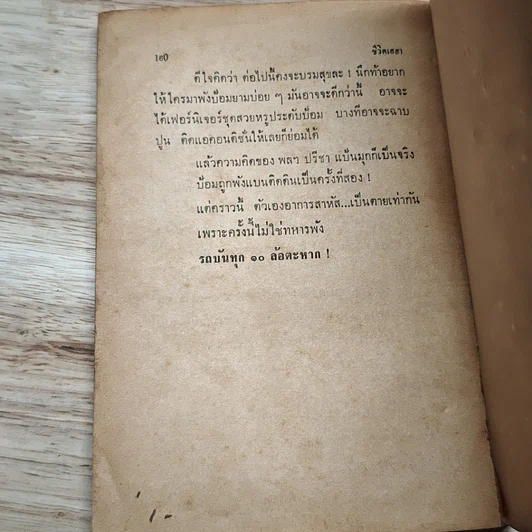 ๑๒๐ ชีวิตเฮฮา
ดีใจคิดว่า ต่อไปนี้คงจะบรมสุขละ ! นึกท้าอยาก
ให้ใครมาพังป้อมยามบ่อย ๆ มันอาจจะดีกว่านี้ อาจจะ
ได้เฟอร์นิเจอร์ชุดสวยหรูประดับป้อม บางทีอาจจะฉาบ
ปูน ติดแอคอนดิชั่นให้เลยก็ย่อมได้
แล้วความคิดของ พลฯ ปรีชา แป้นมุกก็เป็นจริง
ป้อมถูกพังแบนติดดินเป็นครั้งที่สอง !
แต่คราวนี้ ตัวเองอาการสาหัส...เป็นตายเท่ากัน
เพราะครั้งนี้ไม่ใช่ทหารพัง
รถบันทุก ๑๐ ล้อตะหาก !